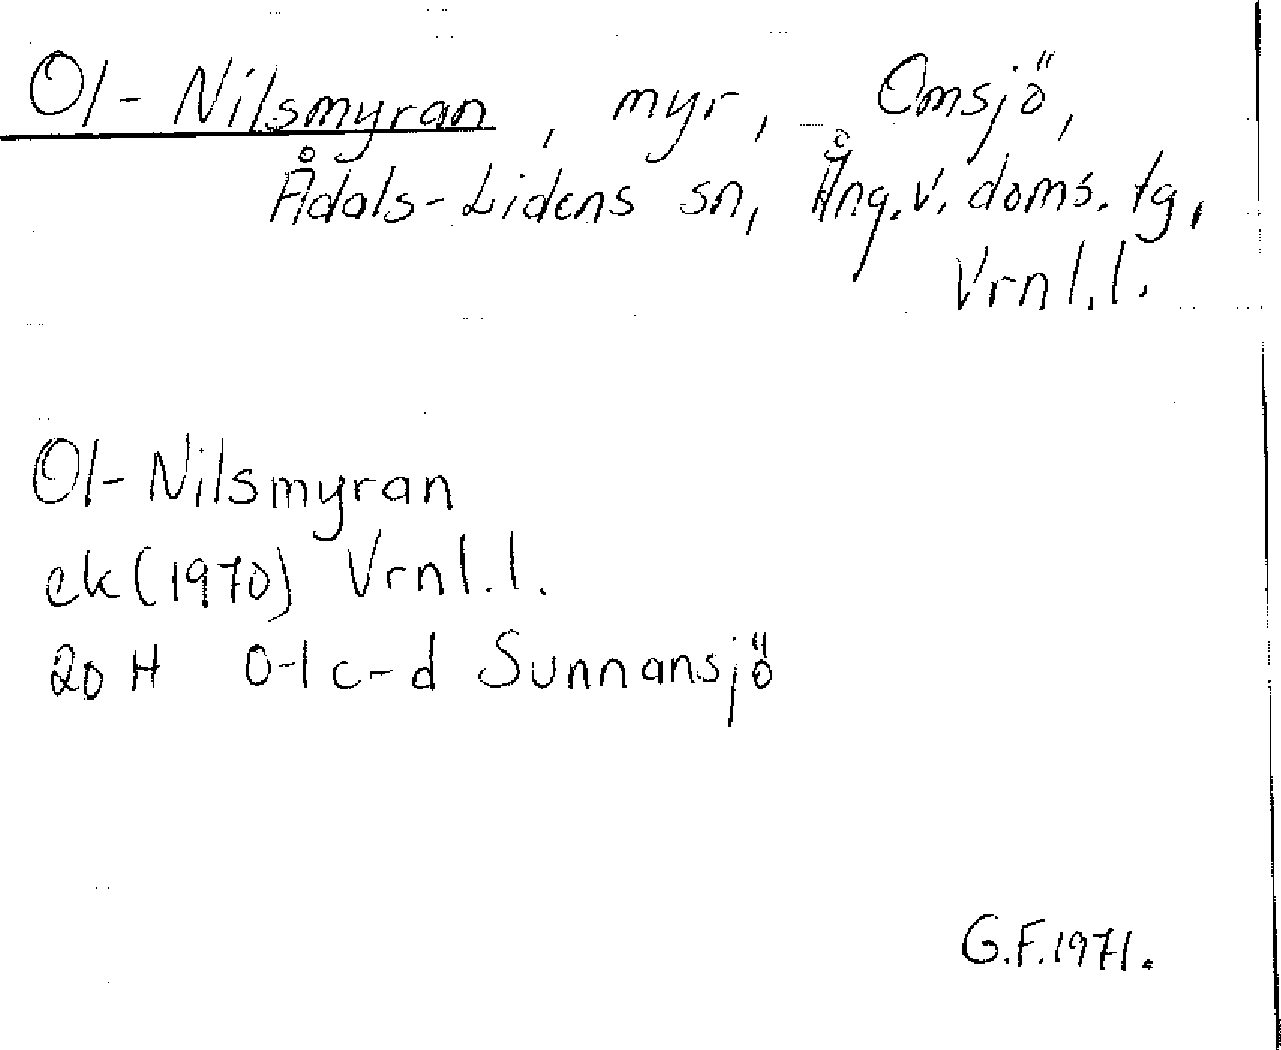 Ol-Nilsmyran, myr, Omsjö,
Ådals-Lidens sn, Ång.v. doms. tg,
Vrnl.l.
Ol-Nilsmyran
ek (1970) Vrnl.l.
20 H 0-1 c-d Sunnansjö
G.F. 1971.